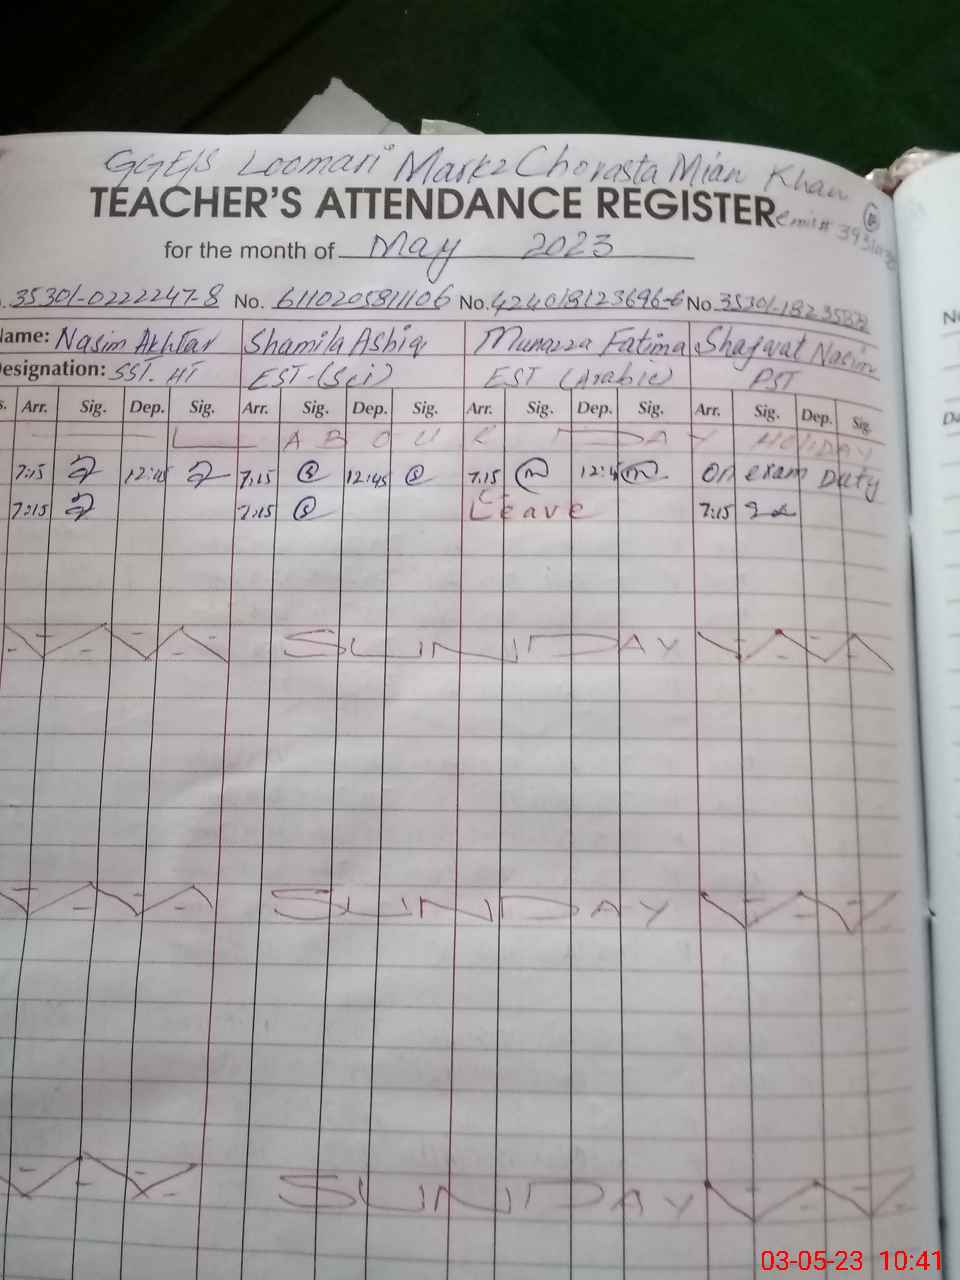 GGE/S Loomari Markz Chorasta Mian Khan
TEACHER'S ATTENDANCE REGISTER
for the month of May 2023
35301-0222247-8 No. 6110205811106 No. 424018123696-6 No.
Name: Nasim Akhtar Shamila Ashiq Munazza Fatima Shafwat
Designation: SST. HT EST-(Sci) EST (Arabic) PST
s. Arr. Sig. Dep. Sig. Arr. Sig. Dep. Sig. Arr. Sig. Dep. Sig. Arr. Sig. Dep. Sig.
LABOUR DAY HOLIDAY
7:15 12:45 7:15 12:45 7:15 On exam Duty
7:15 7:15 Leave 7:15
SUNDAY
SUNDAY
SUNDAY
03-05-23 10:41